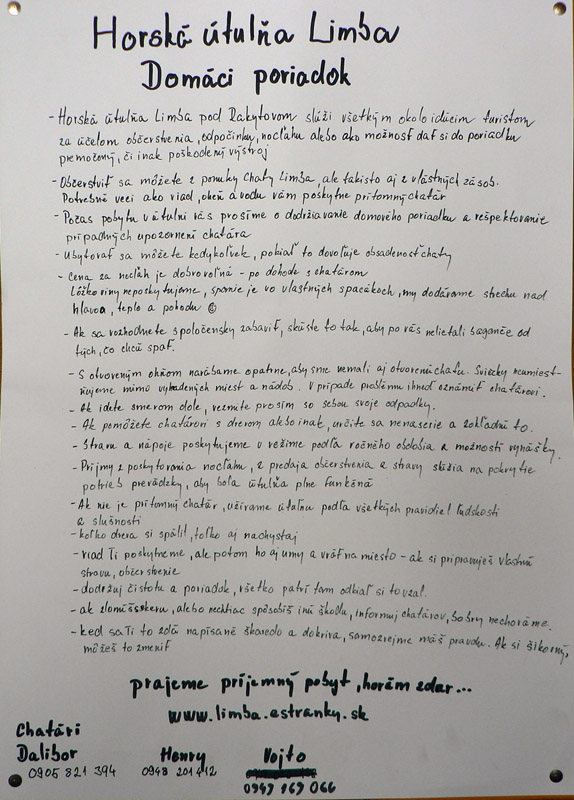 Horská útulňa Limba
Domáci poriadok
- Horská útulňa Limba pod Rakytovom slúži všetkým okoloidúcim turistom
za účelom občerstvenia, odpočinku, noclahu alebo ako možnosť dať si do poriadku
premočený, či inak poškodený výstroj
- Občerstviť sa môžete z ponuky Chaty Limba, ale takisto aj z vlastných zásob.
Potrebné veci ako riad, oheň a vodu vám poskytne prítomný chatár
- Počas pobytu v útulni vás prosíme o dodržiavanie domového poriadku a rešpektovanie
prípadných upozornení chatára
- Ubytovať sa môžete kedykoľvek, pokiaľ to dovoľuje obsadenosť chaty
- Cena za nocľah je dobrovoľná - po dohode s chatárom
Lôžkoviny neposkytujeme, spanie je vo vlastných spacákoch, my dodávame strechu nad
hlavou, teplo a pohodu ☺
- Ak sa rozhodnete spoločensky zabaviť, skúste to tak, aby po vás nelietali baganče od
tých, čo chcú spať.
- S otvoreným ohňom narábame opatrne, aby sme nemali aj otvorenú chatu. Sviečky neumiest-
ňujeme mimo vyhradených miest a nádob. V prípade problému ihneď oznámiť chatárovi.
- Ak idete smerom dole, vezmite prosím so sebou svoje odpadky.
- Ak pomôžete chatárovi s drevom alebo inak, určite sa nenaserie a zokľadní to.
- Stravu a nápoje poskytujeme v režime podľa ročného obdobia a možností vynášky.
- Príjmy z poskytovania nocľahu, z predaja občerstvenia a stravy slúžia na pokrytie
potrieb prevádzky, aby bola útulňa plne funkčná
- Ak nie je prítomný chatár, užívame útulňu podľa všetkých pravidiel ľudskosti
a slušnosti
- koľko dreva si spálil, toľko aj nachystaj
- riad Ti poskytneme, ale potom ho aj umy a vráť na miesto - ak si pripravuješ vlastnú
stravu, občerstvenie
- dodržuj čistotu a poriadok, všetko patrí tam odkiaľ si to vzal.
- ak zlomíš sekeru, alebo nechtiac spôsobíš inú škodu, informuj chatárov, bobry nechováme.
- keď sa Ti to zdá napísané škaredo a dokriva, samozrejme máš pravdu. Ak si šikovný,
môžeš to zmeniť
prajeme príjemný pobyt, horám zdar...
www.limba.estranky.sk
Chatári
Dalibor Henry Vojto
0905 821 394 0948 201 412
0949 169 066